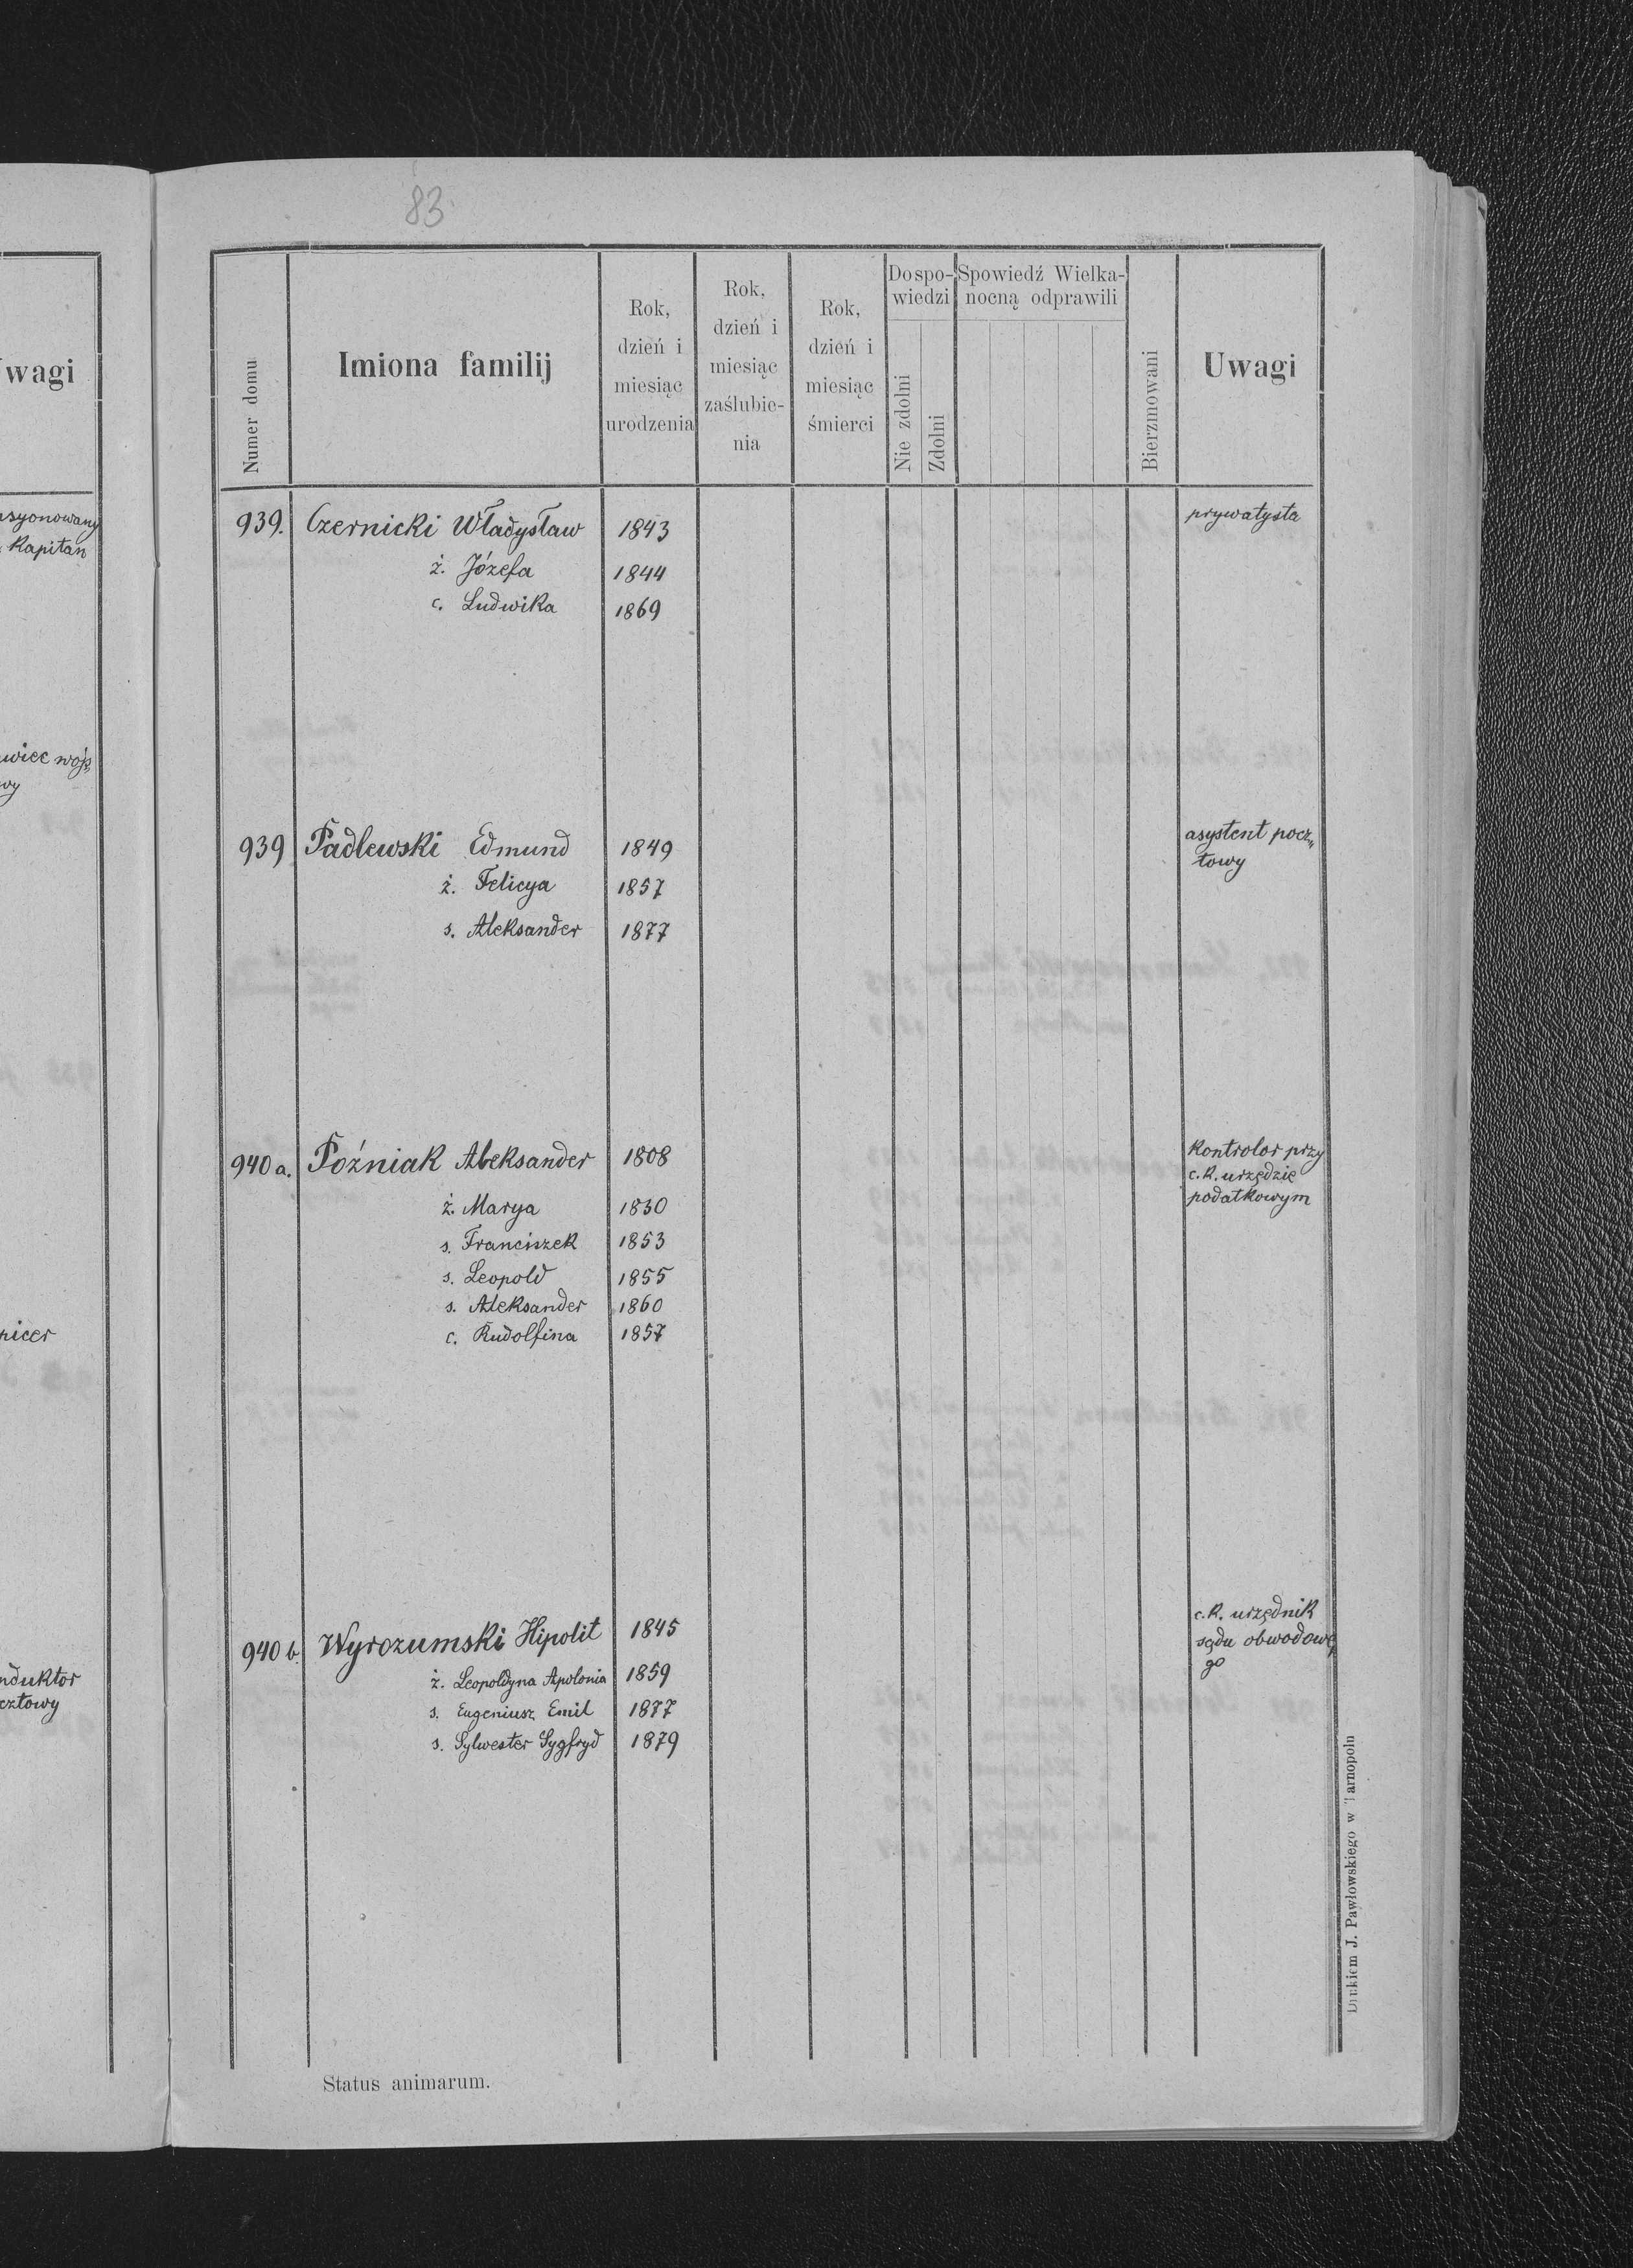 83
Numer domu
Imiona familij
Rok,
dzień i
miesiąc
urodzenia
Rok,
dzień i
miesiąc
zaślubie-
nia
Rok,
dzień i
miesiąc
śmierci
Do spo-
wiedzi
Nie zdolni
Zdolni
Spowiedź Wielka-
nocną odprawili
Bierzmowani
Uwagi
939. Czernicki Władysław 1843 prywatysta
ż. Józefa 1844
c. Ludwika 1869
939 Padlewski Edmund 1849 asystent pocz„
towy
ż. Felicya 1857
s. Aleksander 1877
940 a. Poźniak Aleksander 1808 Kontrolor przy
c.k. urzędzie
podatkowym
ż. Marya 1830
s. Franciszek 1853
s. Leopold 1855
s. Aleksander 1860
c. Rudolfina 1857
940 b. Wyrozumski Hipolit 1845 c.k. urzędnik
sądu obwodowe„
go
ż. Leopoldyna Apolonia 1859
s. Eugeniusz Emil 1877
s. Sylwester Sygfryd 1879
Status animarum.
Drukiem J. Pawłowskiego w Tarnopolu
wagi
Kapitan